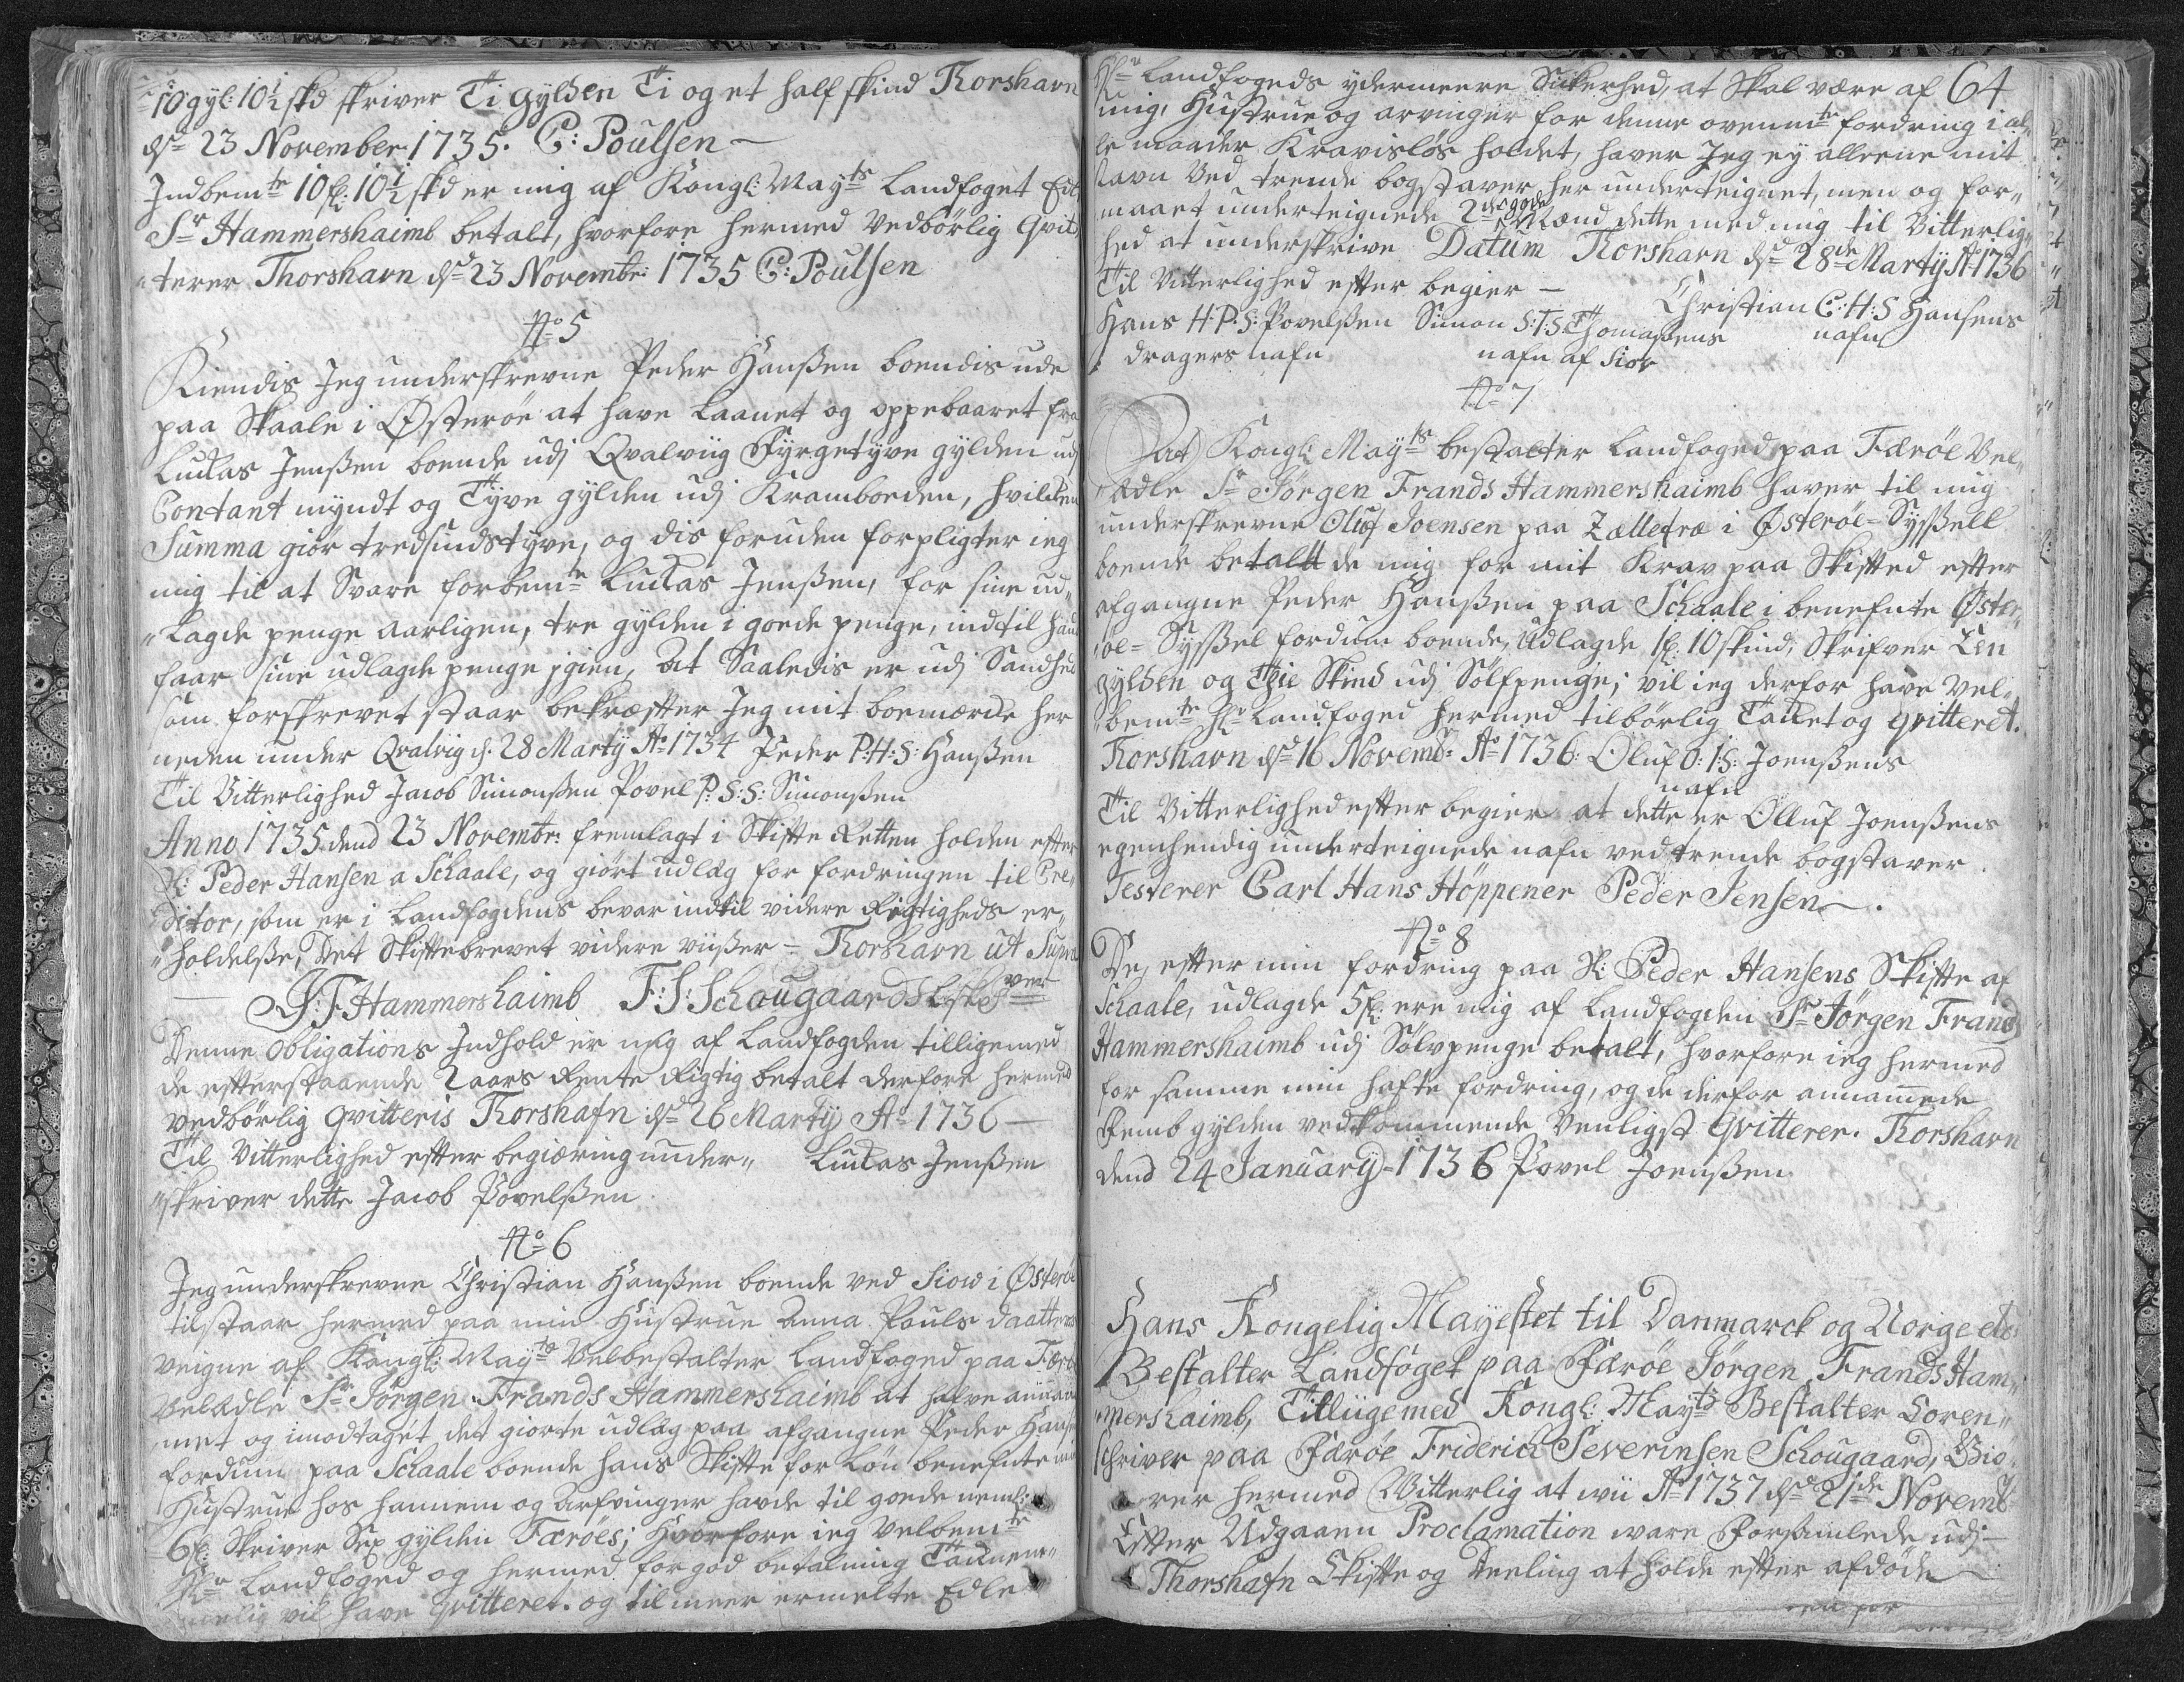 10 gyl: 10½ skd skriver Ti gylden Ti og et half skind Thorshavn
dd 23 November 1735. C: Poulsen —
Indbemte 10 fl: 10½ skd er mig af Kongl: Mayts Landfoget Edl
Sr Hammershaimb betalt, hvorfore hermed Vedbörlig Qvit„
„terer Thorshavn dd 23 Novembr: 1735 C: Poulsen
No 5
Kiendis Jeg underskrevne Peder Hanßen boendis ude
paa Skaale i Østeröe at have Laanet og oppebaaret fra
Luckas Jenßen boende udj Qvalviig Fyrgetyve gylden udj
Contant myndt og Tyve gylden udj Kramboeden, hvilcken
Summa giör tredsindstyve, og dis foruden forpligter ieg
mig til at Svare forbemte Luckas Jenßen, for sine ud„
„lagde penge aarligen, tre gylden i goede penge, indtil hand
faar sine udlagde penge jgien, At Saaledis er udj Sandhed
som forskrevet staar bekræfter Jeg mit boemærcke her
neden under Qvalvig d: 28 Marty Ao 1734 Peder P:H:S: Hanßen
Til Vitterlighed Jacob Simonßen Povel P: S:S: Simonßen
Anno 1735 dend 23 Novembr: fremlagt i Skifte Retten holden efter
Sl: Peder Hansen a Schaale, og giört udlæg for fordringen til Cre„
ditor, som er i Landfogdens bevar indtil videre Rigtigheds er„
„holdelße, Det Skiftebrevet videre viißer — Thorshavn ut Supra
— J: F: Hammershaimb F: S: Schougaard
Denne Obligations Indhold er mig af Landfogden tilligemed
de efterstaaende 2 aars Rente Rigtig betalt derfore hermed
vedbörlig Qvitteris Thorshafn dd 26 Marty Ao 1736 —
Til Vitterlighed efter begiæring under„ Luckas Jenßen
„skriver dette Jacob Povelßen
No 6
Jeg underskrevne Christian Hanßen boende ved Siow i Østeröe
tilstaar hermed paa min Hustrue Anna Pouls daatters
veigne af Kongl: Mayts Velbestalter Landfoged paa Færöe
Velædle Sr Jörgen Frands Hammershaimb at hafve annam„
met og imodtaget det giorte udlæg paa afgangne Peder Hanß
fordum paa Schaale boende hans Skifte for Lön benefnte min
Hustrue hos hannem og Arfvinger havde til goede neml:
6 fl: Skriver Sex gylden Færöes; Hvorfore ieg Velbemte
Hr Landfoged og hermed for god betalning Tacknem„
melig vil have Qvitteret. og til meer ermelte Edle
64
Hr Landfogeds ydermeere Sickerhed, at Skal være af
mig, Hustrue og arvinger for denne ovenmte fordring i al„
le maader Kravislös holdet, haver Jeg ey alleene mit
navn Ved trende bogstaver her underteignet, men og for„
maaet underteignede 2de gode Mænd dette med mig til Vitterlig„
hed at underskrive Datum Thorshavn dd 28de Marty Ao 1736
Til Vitterlighed efter begier — Christian C:H:S Hansens
Hans H:P:S: Povelßen Simon S:T:S: Thomaßens nafn
dragers nafn nafn af Siov
No 7
At Kongl: Mayts bestalter Landfoged paa Færöe Vel„
„ædle Sr Jörgen Frands Hammershaimb haver til mig
underskrevne Oluf Joensen paa Zælletræ i Østeröe-Syßell
boende betalt de mig for mit Krav paa Skiftet efter
afgangne Peder Hanßen paa Schaale i benefnte Øster„
öe-Syßel fordum boende, Udlagde 1 fl: 10 skind, Skrifver Een
gylden og Thie Skind udj Sölfpenge; vil ieg derfor have Vel„
bemte Hr Landfoged hermed tilbörlig Tacket og qvitteret.
Thorshavn dd 16 Novemb: Ao 1736: Oluf O:I:S: Joenßens
nafn
Til Vitterlighed efter begier at dette er Olluf Joenßens
egenhendig underteignede nafn ved trende bogstaver
Testerer Carl Hans Höppener Peder Jensen —.
No 8
De, efter min fordring paa Sl: Peder Hansens Skifte af
Schaale, udlagde 5 fl: ere mig af Landfogden Sr Jörgen Frands
Hammershaimb udj Sölvpenge betalt, hvorfore ieg hermed
for samme min hafte fordring, og de derfor annamede
Femb gylden vedkommende Venligst Qvitterer. Thorshavn
dend 24 January 1736 Povel Joenßen
Hans Kongelig Mayestet til Danmarck og Norge etc
Bestalter Landfoget paa Færöe Jörgen Frands Ham„
„mershaimb, Tilliigemed Kongl: Mayts Bestalter Soren„
schriver paa Færöe Friderick Severinsen Schougaard, Giö„
rer hermed Witterlig at wii Ao 1737 dd 21de Novemb
Efter Udgaaen Proclamation ware Forsamlede udj —
Thorshafn Skifte og Deeling at holde efter afdöde